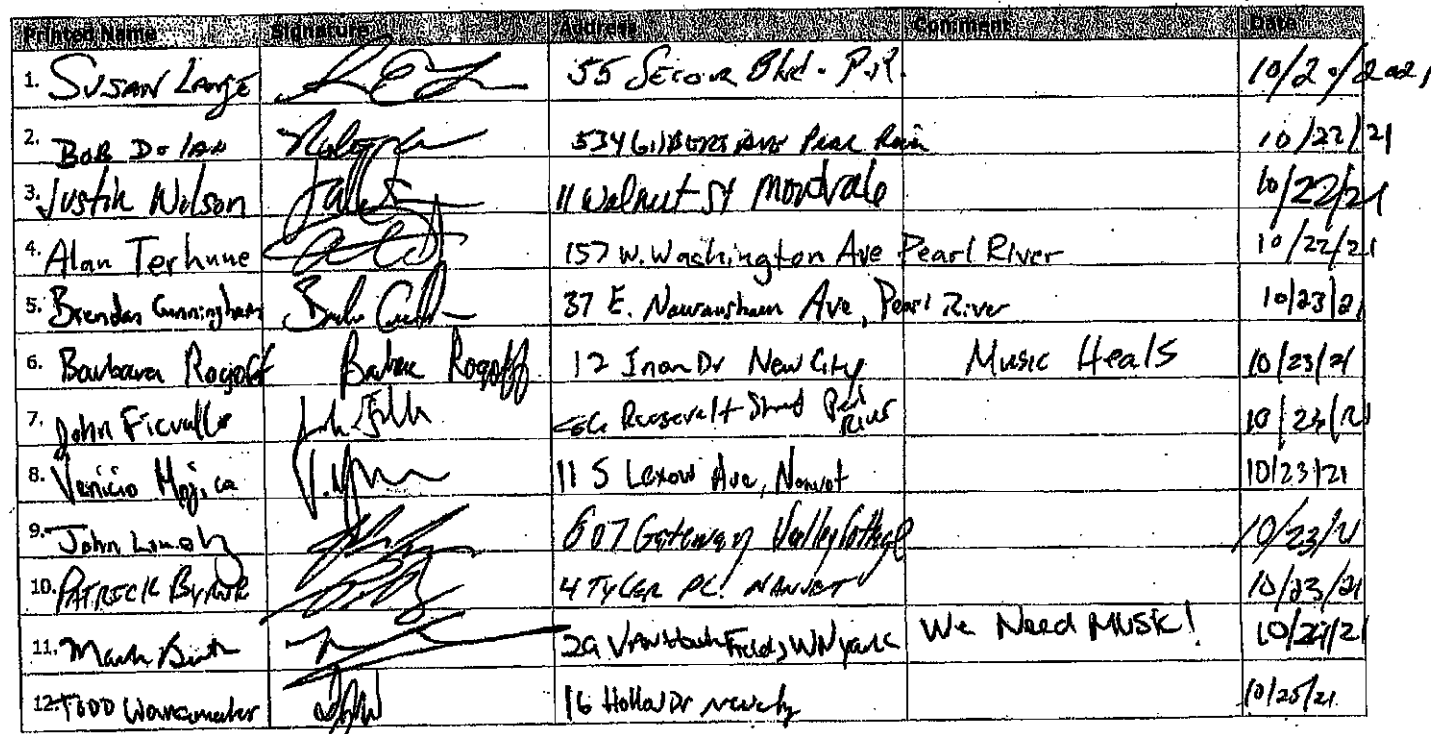 Printed Name Signature Address Comment Date
1. Susan Lange 55 Secor Blvd. P.R. 10/20/2021
2. Bob Dolan 534 Gilbert Ave Pearl River 10/22/21
3. Justin Wilson 11 Walnut St Montvale 10/22/21
4. Alan Terhune 157 W. Washington Ave Pearl River 10/22/21
5. Brendan Cunningham 37 E. Nauraushaun Ave, Pearl River 10/23/21
6. Barbara Rogoff Barbara Rogoff 12 Inon Dr New City Music Heals 10/23/21
7. John Roosevelt Street Pearl River 10/23/21
8. Venicio Mojica 11 S Lexow Ave, Nanuet 10/23/21
9. John 607 Gateway Valley Cottage 10/23/21
10. PATRICK BYRNE 4 TYLER PL. NANUET 10/23/21
11. Mark 29 Van Houten Fields, W Nyack We Need MUSIC! 10/24/21
12. TODD 16 Holland Dr New City 10/25/21